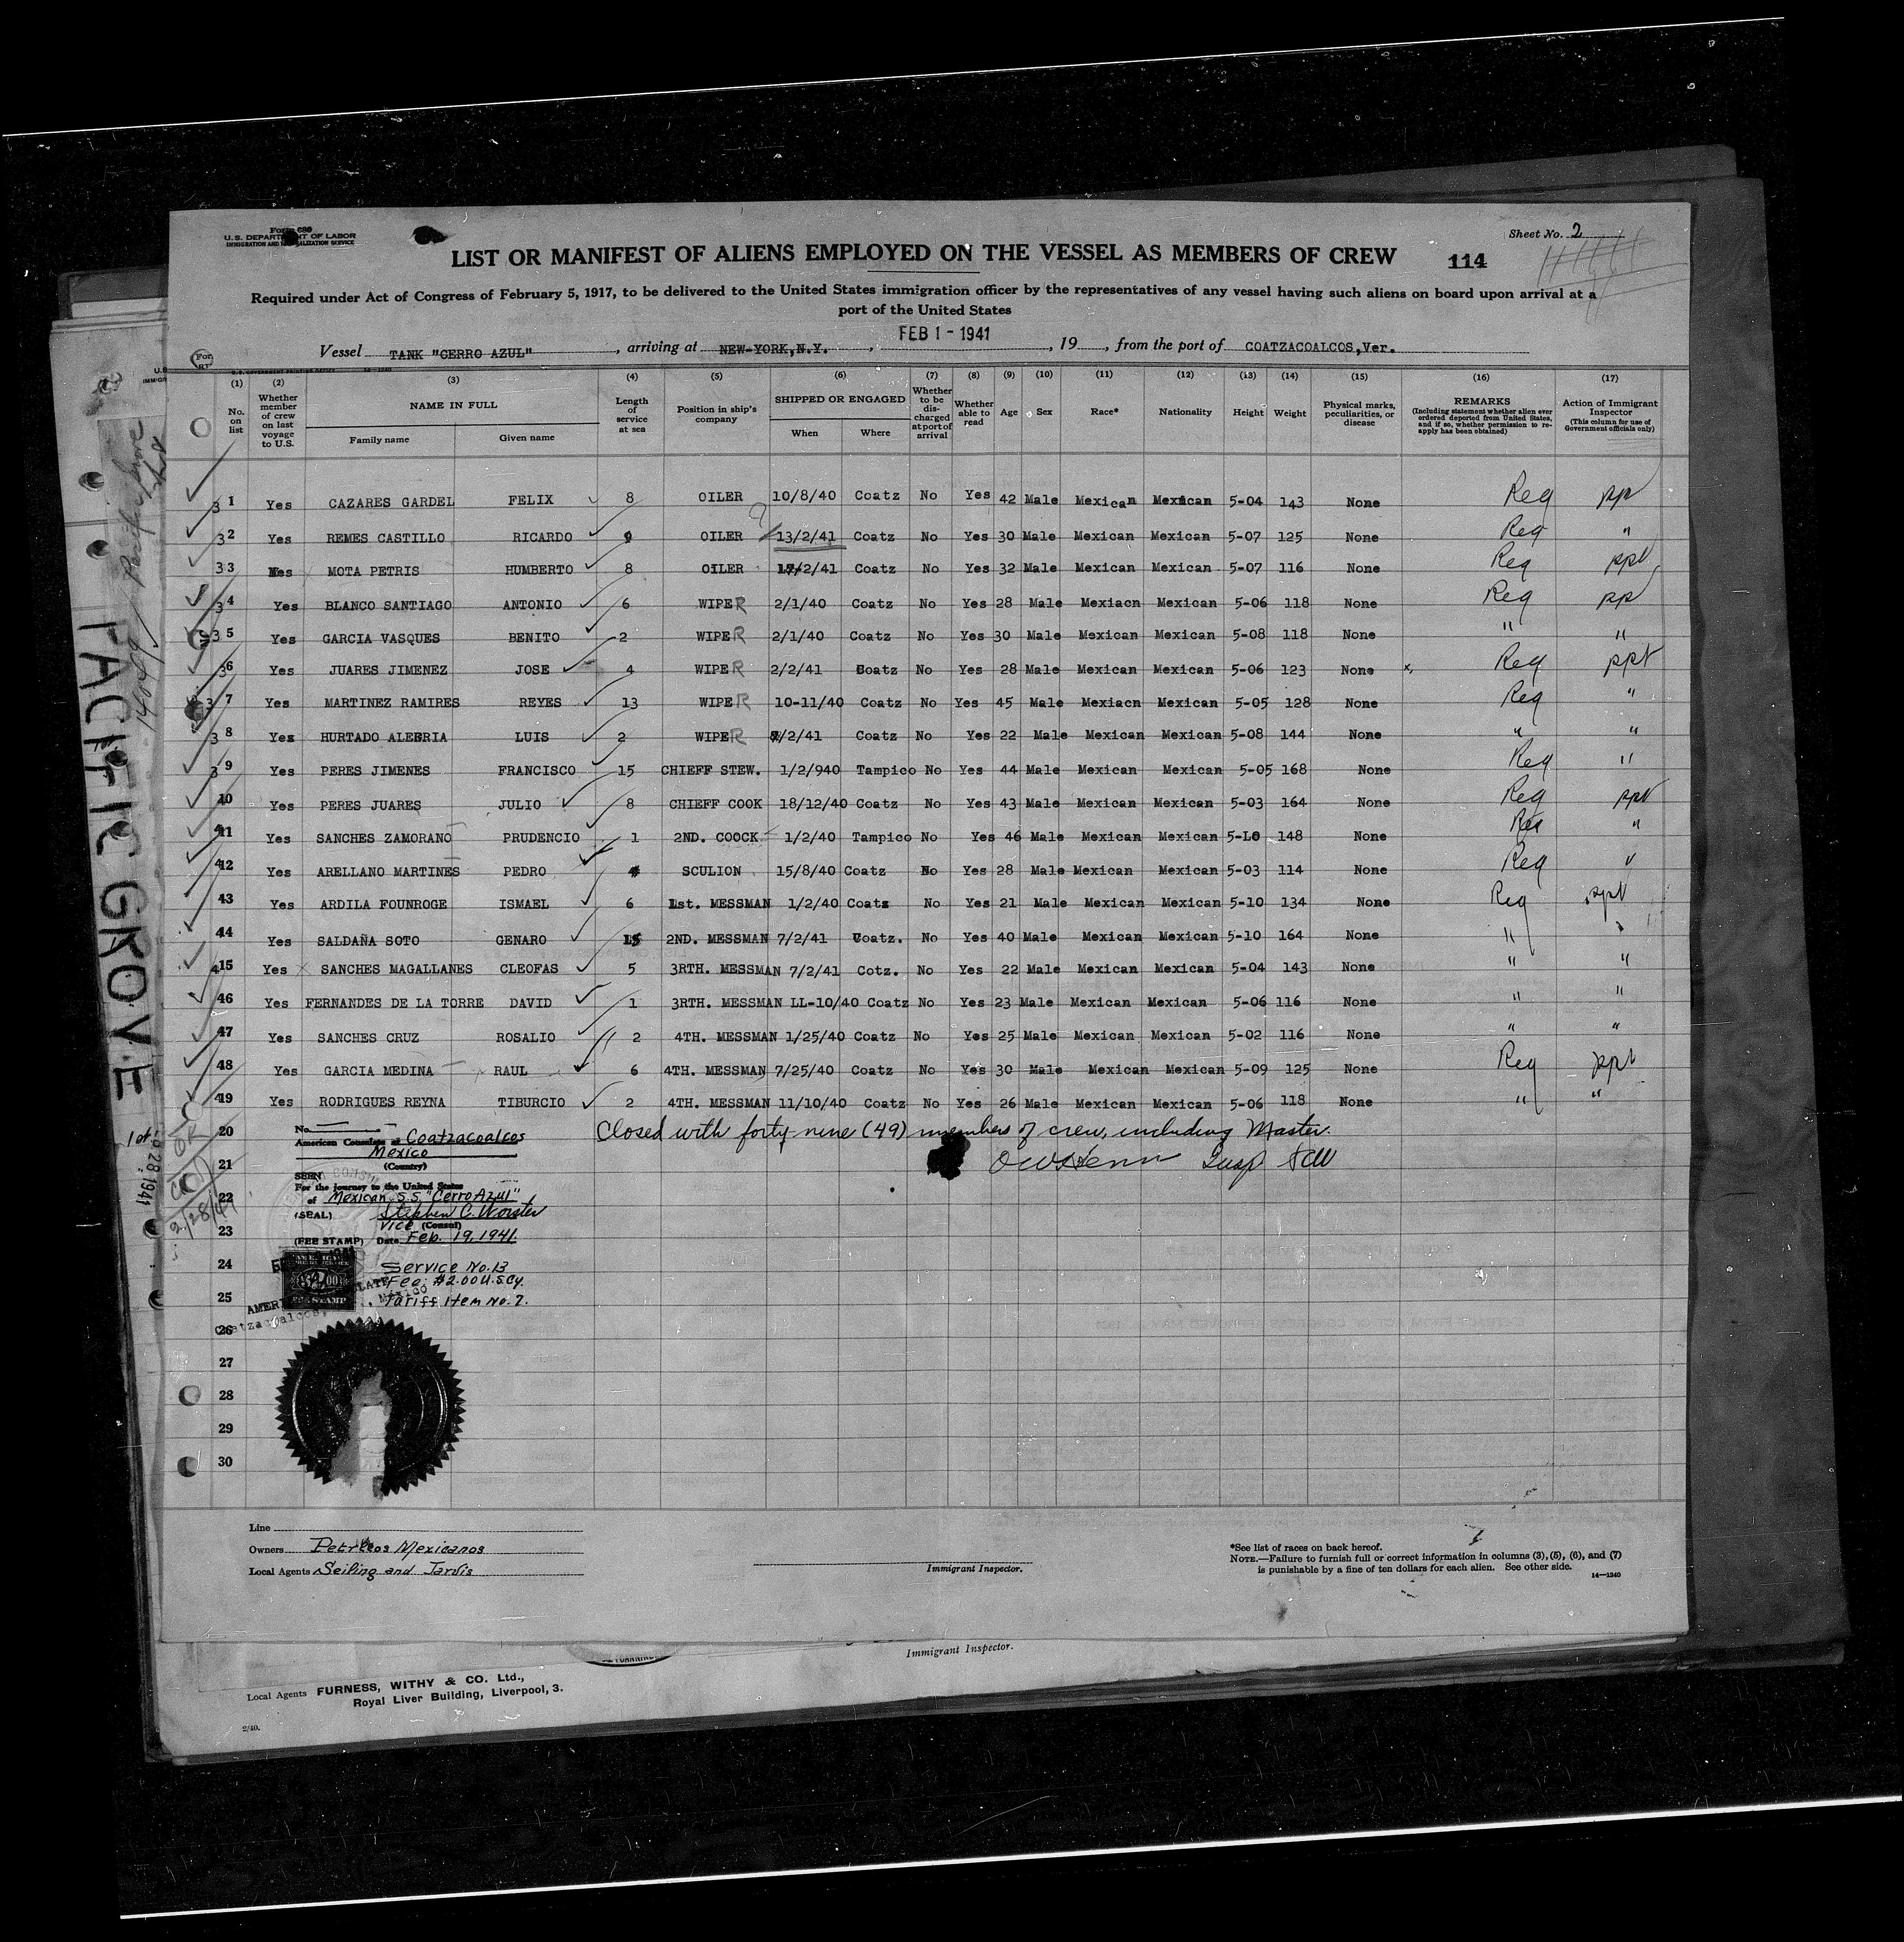 Form 680
U.S. DEPARTMENT OF LABOR
IMMIGRATION AND NATURALIZATION SERVICE
Sheet No. 2
LIST OR MANIFEST OF ALIENS EMPLOYED ON THE VESSEL AS MEMBERS OF CREW 114
Required under Act of Congress of February 5, 1917, to be delivered to the United States immigration officer by the representatives of any vessel having such aliens on board upon arrival at a
port of the United States
FEB 1 - 1941
Vessel TANK "CERRO AZUL", arriving at NEW-YORK,N.Y., 19, from the port of COATZACOALCOS,Ver.
(1) (2) (3) (4) (5) (6) (7) (8) (9) (10) (11) (12) (13) (14) (15) (16) (17)
No. on list Whether member of crew on last voyage to U.S. NAME IN FULL Family name Given name Length of service at sea Position in ship's company SHIPPED OR ENGAGED When Where Whether to be discharged at port of arrival Whether able to read Age Sex Race* Nationality Height Weight Physical marks, peculiarities, or disease REMARKS (Including statement whether alien ever ordered deported from United States, and if so, whether permission to reapply has been obtained) Action of Immigrant Inspector (This column for use of Government officials only)
31 Yes CAZARES GARDEL FELIX 8 OILER 10/8/40 Coatz No Yes 42 Male Mexican Mexican 5-04 143 None Reg pp
32 Yes REMES CASTILLO RICARDO 9 OILER 13/2/41 Coatz No Yes 30 Male Mexican Mexican 5-07 125 None Reg "
33 Yes MOTA PETRIS HUMBERTO 8 OILER 17/2/41 Coatz No Yes 32 Male Mexican Mexican 5-07 116 None Reg ppt
34 Yes BLANCO SANTIAGO ANTONIO 6 WIPER 2/1/40 Coatz No Yes 28 Male Mexiacn Mexican 5-06 118 None Reg pp
35 Yes GARCIA VASQUES BENITO 2 WIPER 2/1/40 Coatz No Yes 30 Male Mexican Mexican 5-08 118 None " "
36 Yes JUARES JIMENEZ JOSE 4 WIPER 2/2/41 Coatz No Yes 28 Male Mexican Mexican 5-06 123 None x, Reg ppt
37 Yes MARTINEZ RAMIRES REYES 13 WIPER 10-11/40 Coatz No Yes 45 Male Mexiacn Mexican 5-05 128 None Reg "
38 Yes HURTADO ALEGRIA LUIS 2 WIPER /2/41 Coatz No Yes 22 Male Mexican Mexican 5-08 144 None " "
39 Yes PERES JIMENES FRANCISCO 15 CHIEFF STEW. 1/2/940 Tampico No Yes 44 Male Mexican Mexican 5-05 168 None Reg "
40 Yes PERES JUARES JULIO 8 CHIEFF COOK 18/12/40 Coatz No Yes 43 Male Mexican Mexican 5-03 164 None Reg ppt
41 Yes SANCHES ZAMORANO PRUDENCIO 1 2ND. COOCK 1/2/40 Tampico No Yes 46 Male Mexican Mexican 5-L0 148 None Reg "
42 Yes ARELLANO MARTINES PEDRO 4 SCULION 15/8/40 Coatz No Yes 28 Male Mexican Mexican 5-03 114 None Reg "
43 Yes ARDILA FOUNROGE ISMAEL 6 1st. MESSMAN 1/2/40 Coatz No Yes 21 Male Mexican Mexican 5-10 134 None Reg ppt
44 Yes SALDAÑA SOTO GENARO 15 2ND. MESSMAN 7/2/41 Coatz. No Yes 40 Male Mexican Mexican 5-10 164 None " "
45 Yes SANCHES MAGALLANES CLEOFAS 5 3RTH. MESSMAN 7/2/41 Cotz. No Yes 22 Male Mexican Mexican 5-04 143 None " "
46 Yes FERNANDES DE LA TORRE DAVID 1 3RTH. MESSMAN LL-10/40 Coatz No Yes 23 Male Mexican Mexican 5-06 116 None " "
47 Yes SANCHES CRUZ ROSALIO 2 4TH. MESSMAN 1/25/40 Coatz No Yes 25 Male Mexican Mexican 5-02 116 None " "
48 Yes GARCIA MEDINA RAUL 6 4TH. MESSMAN 7/25/40 Coatz No Yes 30 Male Mexican Mexican 5-09 125 None Reg ppt
49 Yes RODRIGUES REYNA TIBURCIO 2 4TH. MESSMAN 11/10/40 Coatz No Yes 26 Male Mexican Mexican 5-06 118 None " "
20 Closed with forty nine (49) members of crew, including Master.
21
22
23
24
25
26
27
28
29
30
No.
American Consulate at Coatzacoalcos
Mexico
(Country)
SEEN
For the journey to the United States
of Mexican S.S. "Cerro Azul"
(SEAL) Stephen C. Worster
Vice (Consul)
(FEE STAMP) Date Feb. 19, 1941.
Service No. 13
Fee: $2.00 U.S.Cy.
Tariff Item No. 7.
Line
Owners Petróleos Mexicanos
Local Agents Seiling and Jarvis
Immigrant Inspector.
*See list of races on back hereof.
NOTE.—Failure to furnish full or correct information in columns (3), (5), (6), and (7)
is punishable by a fine of ten dollars for each alien. See other side.
14—1240
Immigrant Inspector.
Local Agents FURNESS, WITHY & CO. Ltd.,
Royal Liver Building, Liverpool, 3.
2/40.
PACIFIC GROVE
28 1941
2/28/41